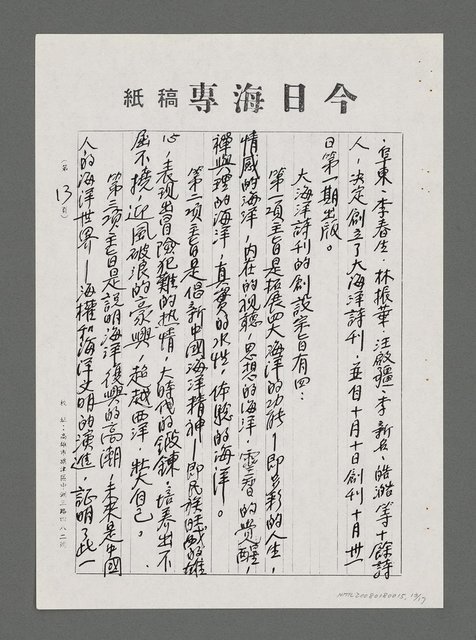 今日海專稿紙
阜東、李春生、林振華、汪啟疆、李新兵、皓浩等十餘詩
人，決定創立了大海洋詩刊，並自十月十日創刊十月卅一
日第一期出版。
大海洋詩刊的創設宗旨有四：
第一項主旨是拓展四大海洋的功能—即多彩的人生，
情感的海洋，內在的視聽，思想的海洋，靈智的覺醒，
禪與理的海洋，真實的水性，体驗的海洋。
第二項主旨是倡新中國海洋精神—即民族雄
心，表現出冒險犯難的热情，大時代的鍛鍊，培養出不
屈不撓，迎風破浪的豪興，超越西洋，壯大自己。
第三項主旨是說明海洋復興的高潮，未來是中國
人的海洋世界—海權和海洋文明的演進，証明了此一
（第13頁）
校址：高雄市旗津區中洲三路四八二號
NMTL20080180015 13/17